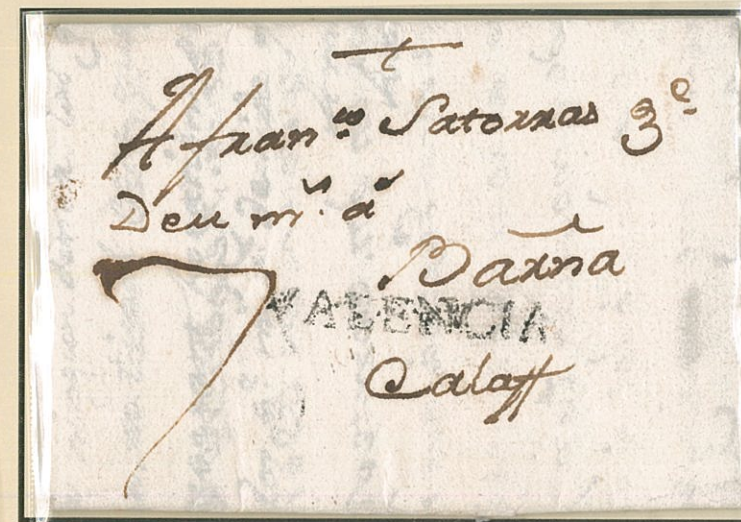 A fran.co Satorras 3.e
Deu m.s a.s
Barña
7
VALENCIA
Calaff